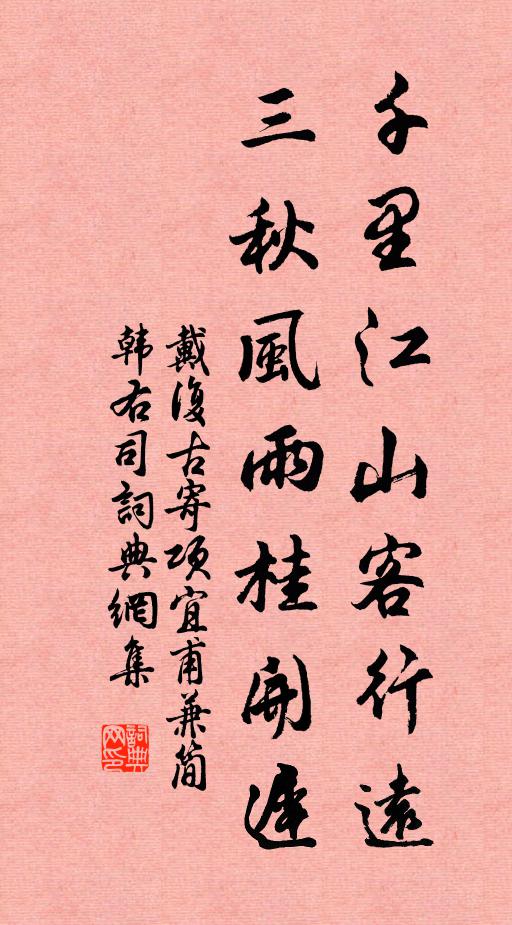 千里江山客行遠
三秋風雨桂開遲
戴復古寄項宜甫兼簡
韩右司詞典網集
詞典网印